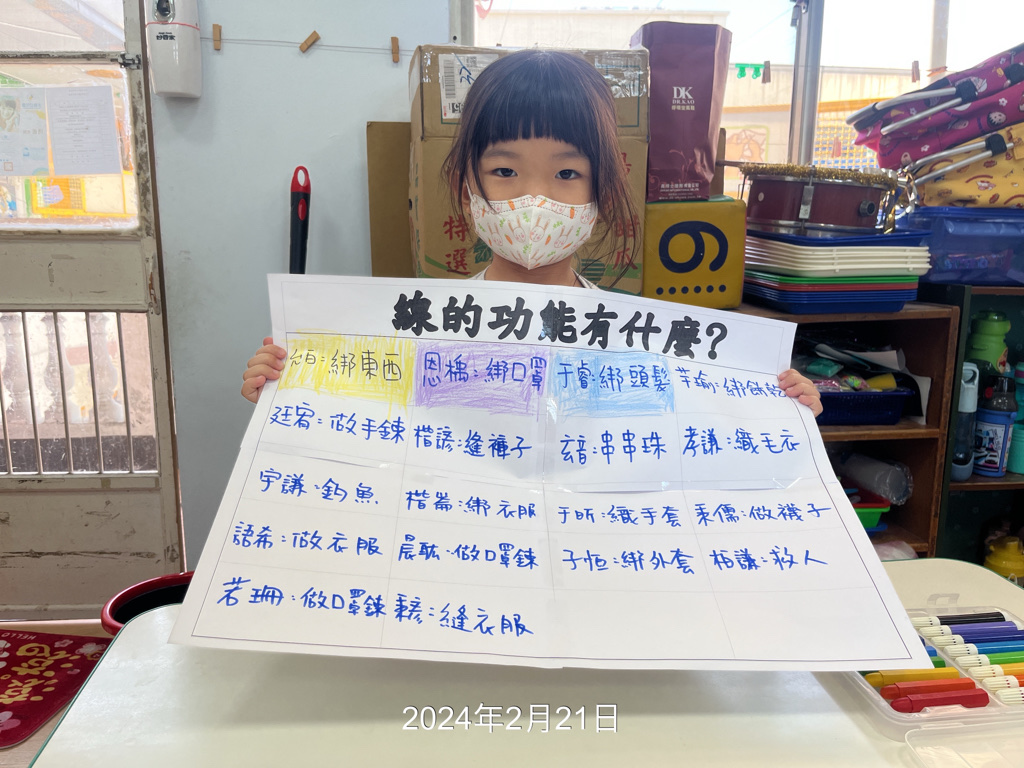 DK
DR.KAO
特選
線的功能有什麼?
元白:綁東西 恩橋:綁口罩 于睿:綁頭髮 芊瑜:綁餅乾
廷宥:做手鍊 楷諺:縫褲子 玄音:串串珠 孝議:織毛衣
宇謙:釣魚 楷崙:綁衣服 于昕:織手套 秉儒:做襪子
語希:做衣服 晨耘:做口罩鍊 子恒:綁外套 柏謙:救人
若珊:做口罩鍊 :縫衣服
HELLO
2024年2月21日